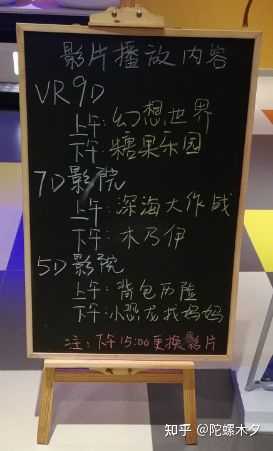 影片播放内容
VR9D
上午:幻想世界
下午:糖果乐园
7D影院
上午:深海大作战
下午:木乃伊
5D影院
上午:背包历险
下午:小恐龙找妈妈
注:下午15:00更换影片
知乎 @陀螺木夕